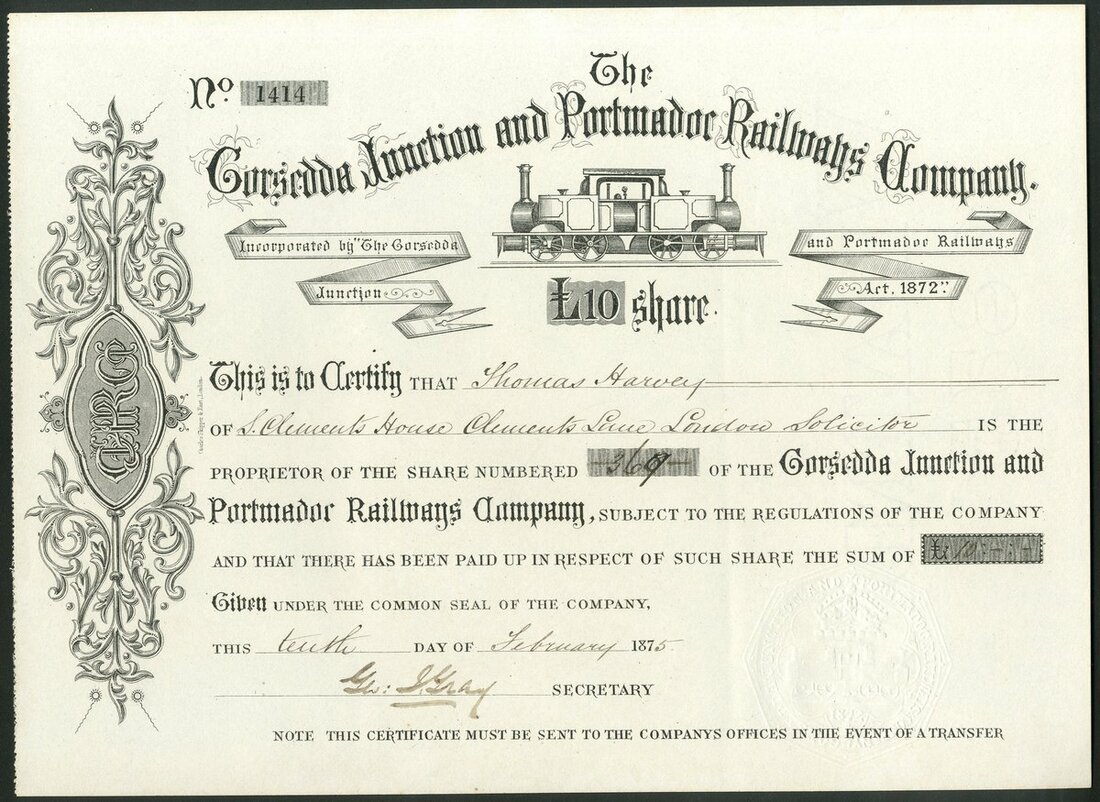 No. 1414
The
Gorsedda Junction and Portmadoc Railways Company.
Incorporated by "The Gorsedda
Junction
and Portmadoc Railways
Act, 1872".
£10 share.
This is to Certify THAT Thomas Harvey
OF St. Clements House Clements Lane London Solicitor IS THE
PROPRIETOR OF THE SHARE NUMBERED 369 OF THE Gorsedda Junction and
Portmadoc Railways Company, SUBJECT TO THE REGULATIONS OF THE COMPANY
AND THAT THERE HAS BEEN PAID UP IN RESPECT OF SUCH SHARE THE SUM OF £10
Given UNDER THE COMMON SEAL OF THE COMPANY,
THIS tenth DAY OF February 1875
Geo: J. Gray SECRETARY
NOTE THIS CERTIFICATE MUST BE SENT TO THE COMPANYS OFFICES IN THE EVENT OF A TRANSFER